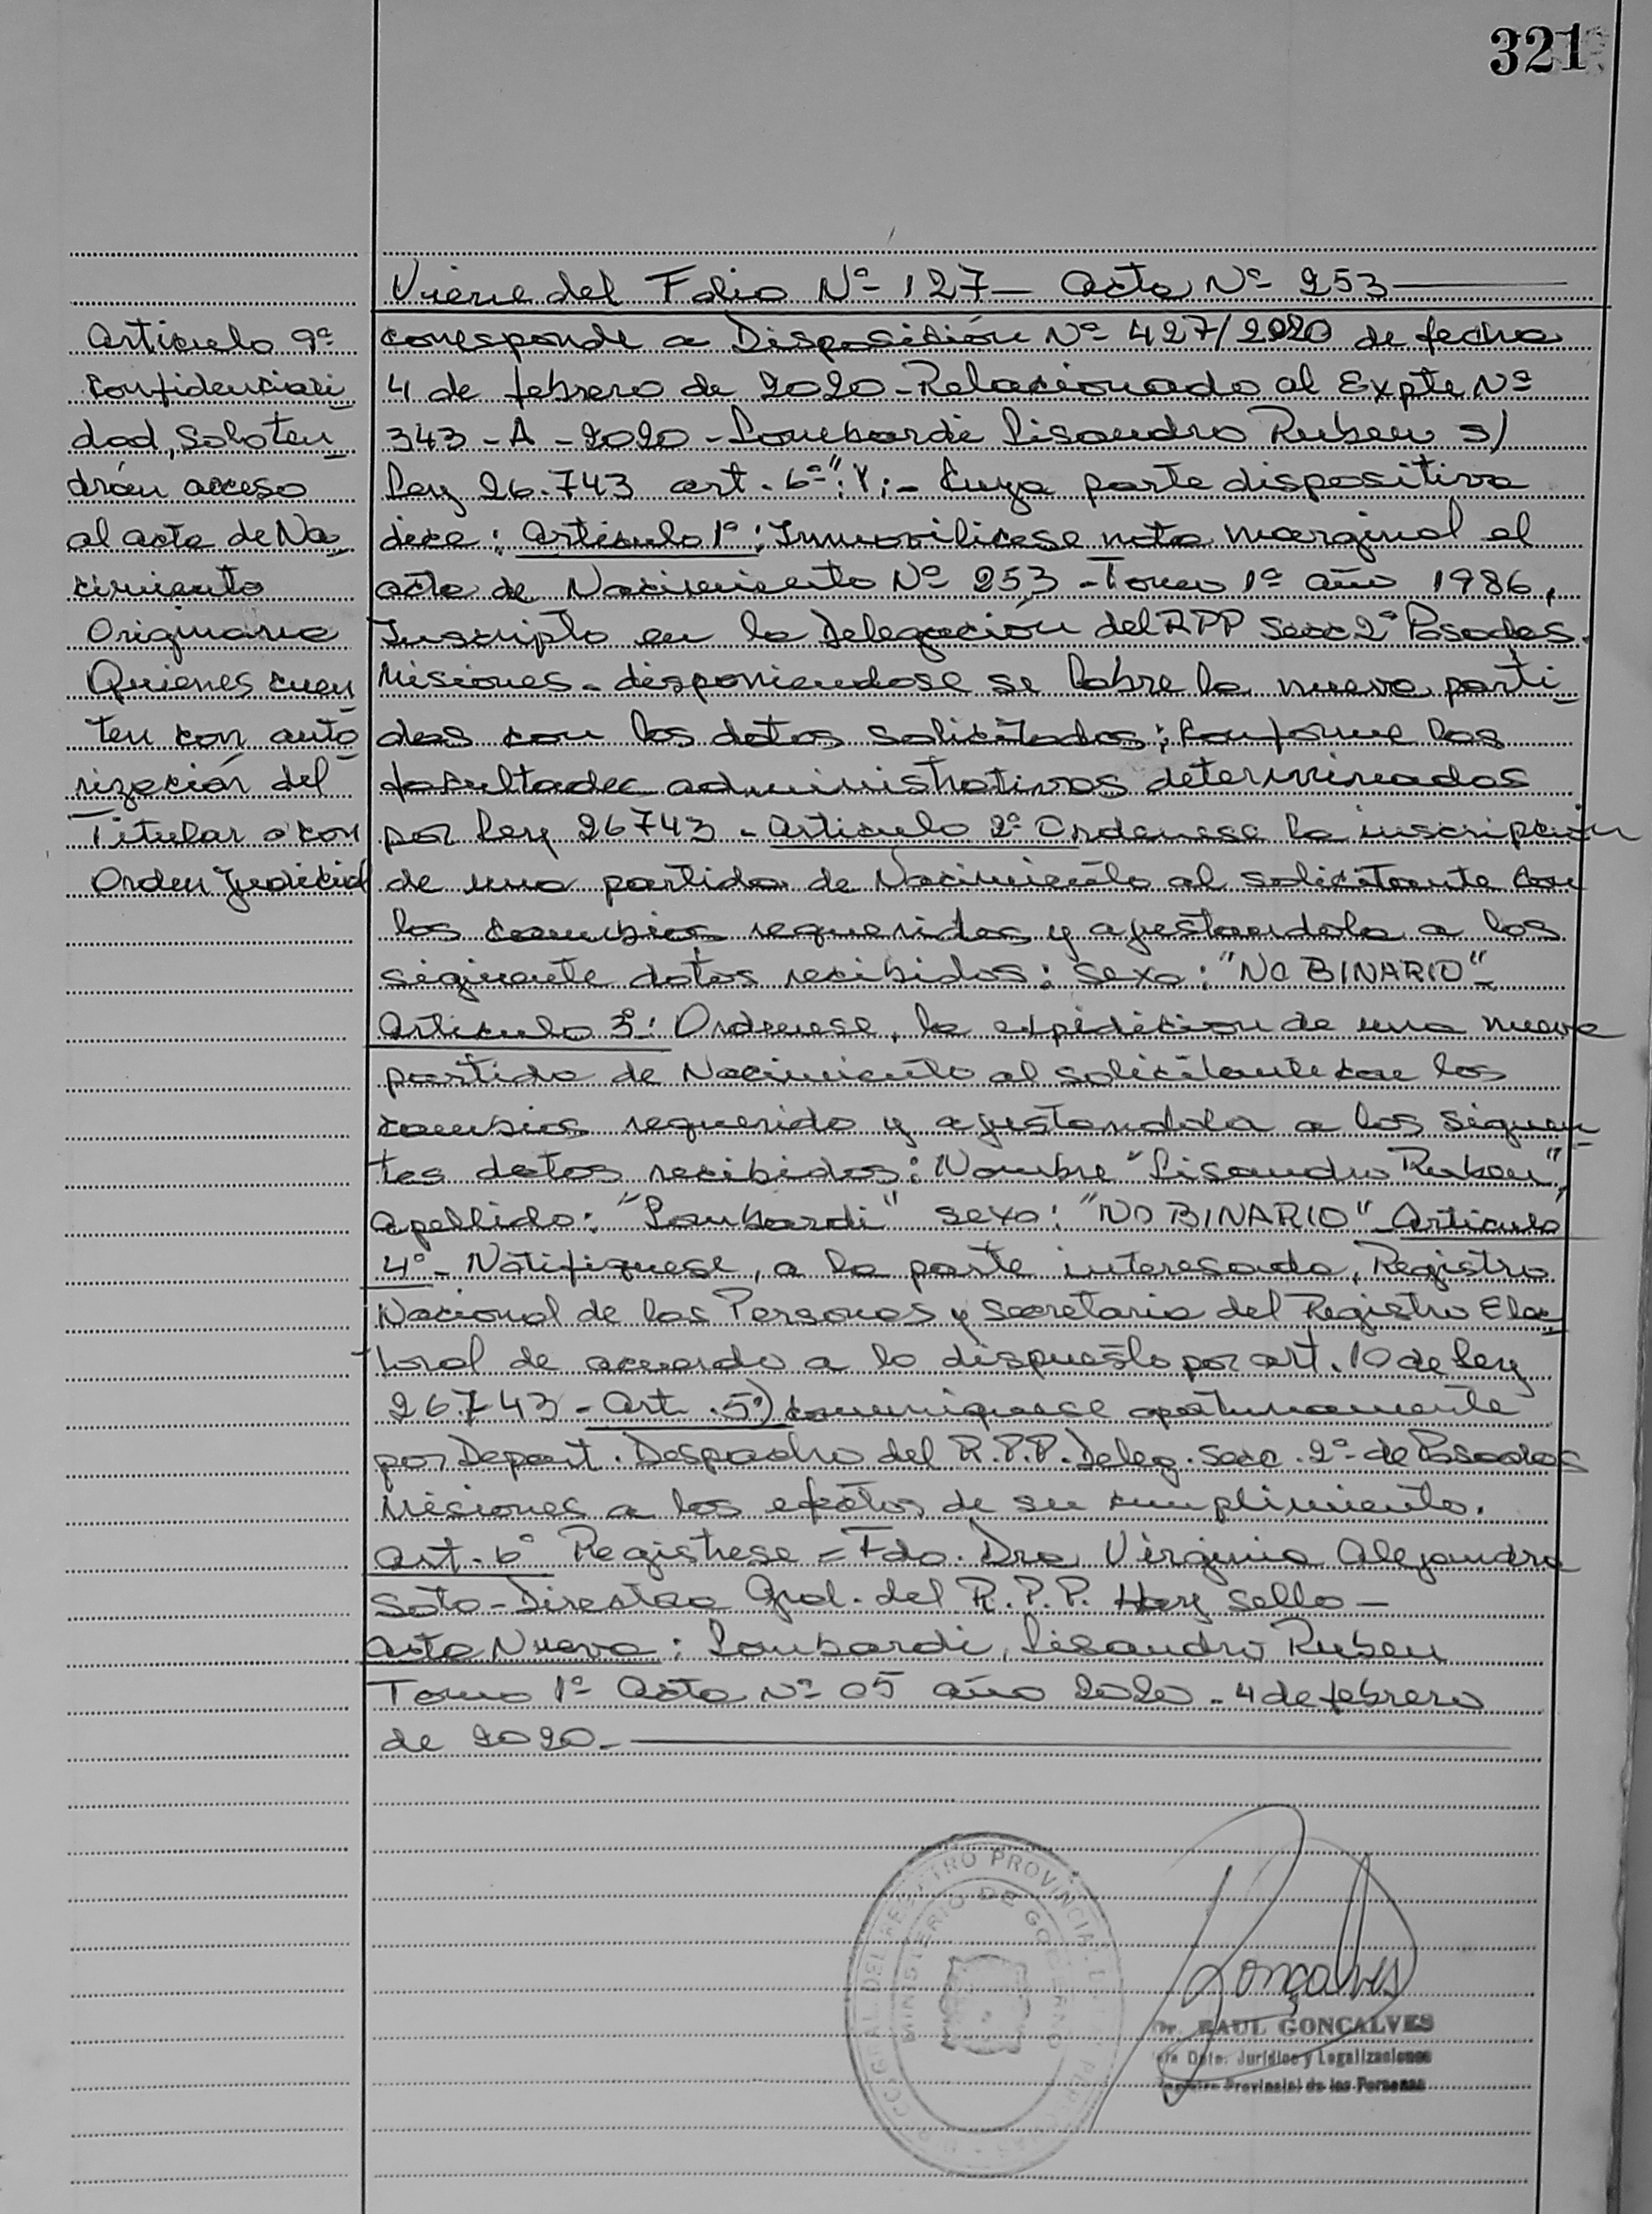 321
Viene del Folio Nº 127 — Acta Nº 253
Articulo 9º
Confidenciali
dad, Solo ten
drán acceso
al acta de Na
cimiento
Originaria
Quienes cuen
ten con auto
rización del
Titular o con
Orden Judicial
corresponde a Disposición Nº 427/2020 de fecha
4 de febrero de 2020 - Relacionado al Expte Nº
343 - A - 2020 - Lombardi Lisandro Ruben s/
Ley 26.743 art. 6º "Y;- Cuya parte dispositiva
dice: Articulo 1º: Inmovilicese nota marginal al
acta de Nacimiento Nº 253 - Tomo 1º año 1986,
Inscripto en la Delegación del RPP Secc 2º Posadas.
Misiones - disponiendose se labre la nueva parti
das con los datos solicitados; Conforme las
facultades administrativas determinadas
por Ley 26743 - Articulo 2º Ordenase la inscripción
de una partida de Nacimiento al solicitante con
los cambios requeridos y ajustandola a los
siguiente datos recibidos: Sexo: "NO BINARIO" -
Articulo 3º: Ordenese, la expidicion de una nueva
partida de Nacimiento al solicitante con los
cambios requerido y ajustandola a los siguen
tes datos recibidos: Nombre "Lisandro Ruben",
Apellido: "Lombardi" sexo: "NO BINARIO" - Articulo
4º - Notifiquese, a la parte interesada, Registro
Nacional de las Personas y Secretaria del Registro Elec
toral de acuerdo a lo dispuesto por art. 10 de Ley
26743 - Art. 5º) Comuniquese oportunamente
por Depart. Despacho del R.P.P. Deleg. Secc. 2º de Posadas
Misiones a los efectos de su cumplimiento.
Art. 6º Registrese = Fdo. Dra Virginia Alejandra
Soto - Directora Gral. del R.P.P. Hay Sello -
Acta Nueva: Lombardi, Lisandro Ruben
Tomo 1º Acta Nº 05 año 2020 - 4 de febrero
de 2020 -
REGISTRO PROVINCIAL DE LAS PERSONAS
MINISTERIO DE GOBIERNO
Gonçalves
Dr. RAUL GONCALVES
Dpto. Jurídico y Legalizaciones
Registro Provincial de las Personas